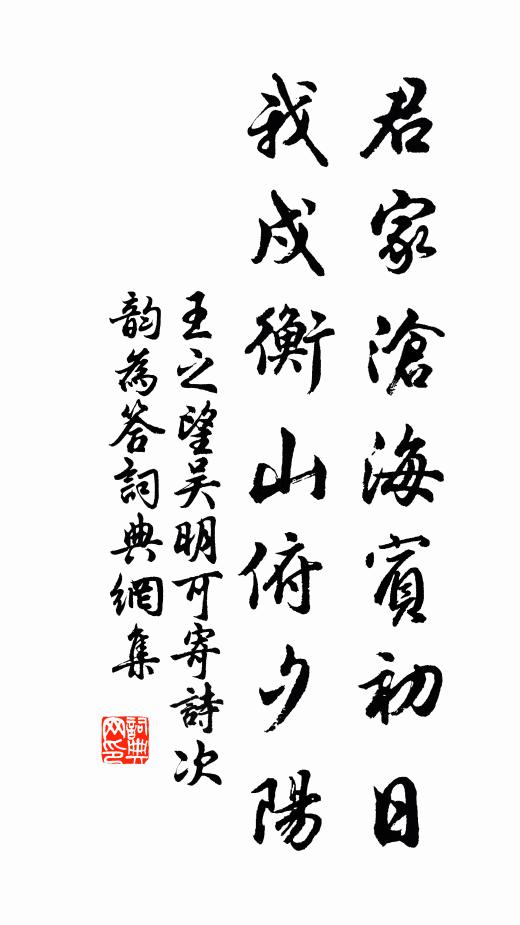 君家滄海賓初日
我戍衡山俯夕陽
王之望吳明可寄詩次
韵為答詞典網集
詞典
网印